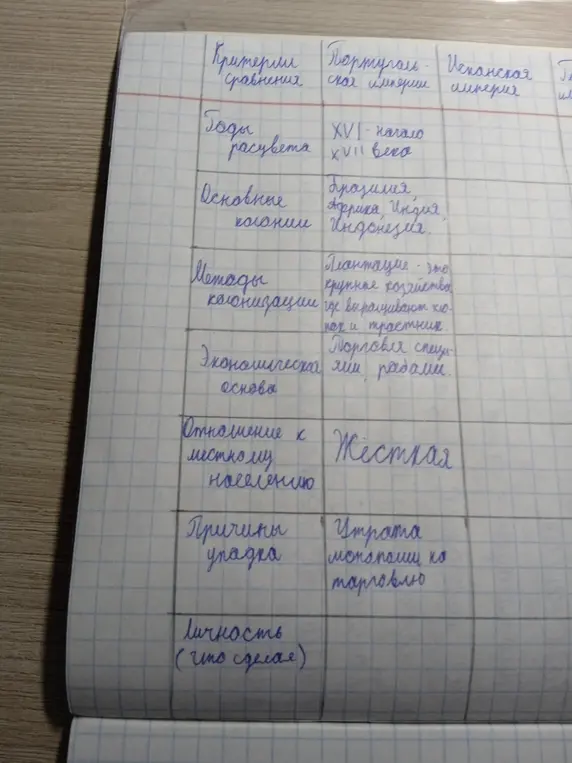 Критерии
сравнения
Португаль-
ская империи
Испанская
империя
Годы
расцвета
XVI - начало
XVII века
Основные
колонии
Бразилия,
Африка, Индия,
Индонезия.
Методы
колонизации
Плантации - это
крупные хозяйства,
где выращивают хло-
пок и трастник.
Экономическая
основа
Торговля специ-
ями, рабами.
Отношение к
местному
населению
Жёсткая
Причины
упадка
Утрата
монопалии на
тарговлю
Личность
(что сделал)